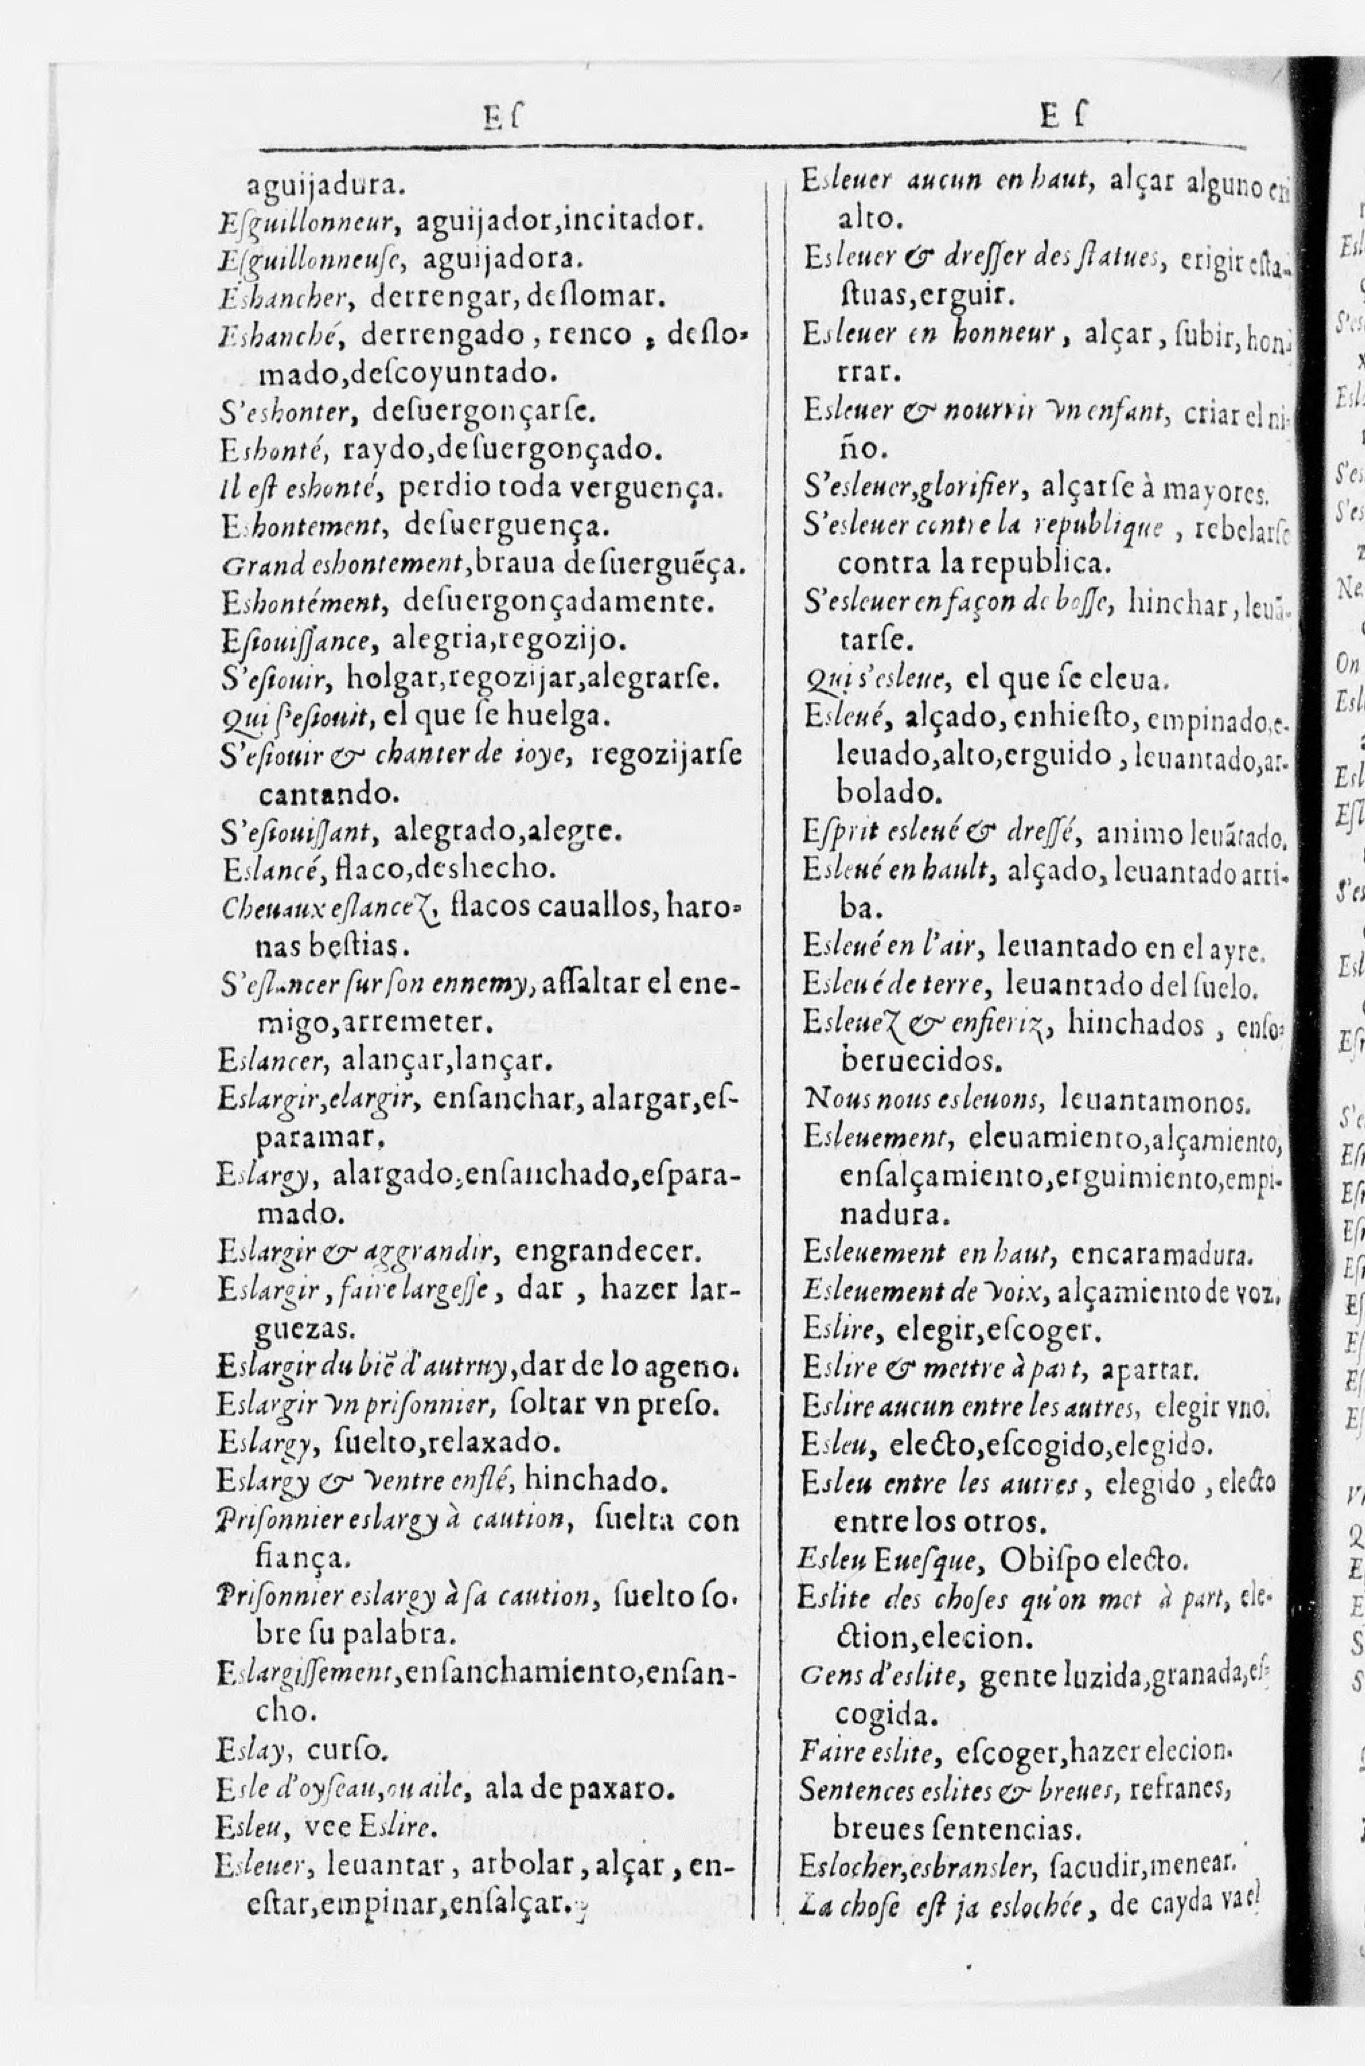 Eſ
aguijadura.
Eſguillonneur, aguijador,incitador.
Eſguillonneuſe, aguijadora.
Eshancher, derrengar, deſlomar.
Eshanché, derrengado, renco, deſlo-
mado,deſcoyuntado.
S'eshonter, deſuergonçarſe.
Eshonté, raydo,deſuergonçado.
Il eſt eshonté, perdio toda verguença.
Eshontement, deſuerguença.
Grand eshontement,braua deſuerguẽça.
Eshontément, deſuergonçadamente.
Eſiouiſſance, alegria,regozijo.
S'eſiouir, holgar,regozijar,alegrarſe.
Qui ſ'eſiouit, el que ſe huelga.
S'eſiouir & chanter de ioye, regozijarſe
cantando.
S'eſiouiſſant, alegrado,alegre.
Eslancé, flaco,deshecho.
Cheuaux eſlancez, flacos cauallos, haro-
nas beſtias.
S'eſlancer ſur ſon ennemy, aſſaltar el ene-
migo,arremeter.
Eslancer, alançar,lançar.
Eslargir,elargir, enſanchar, alargar,eſ-
paramar.
Eslargy, alargado,enſanchado,eſpara-
mado.
Eslargir & aggrandir, engrandecer.
Eslargir, faire largeſſe, dar, hazer lar-
guezas.
Eslargir du biẽ d'autruy,dar de lo ageno.
Eslargir vn priſonnier, ſoltar vn preſo.
Eslargy, ſuelto,relaxado.
Eslargy & ventre enflé, hinchado.
Priſonnier eslargy à caution, ſuelta con
fiança.
Priſonnier eslargy à ſa caution, ſuelto ſo-
bre ſu palabra.
Eslargiſſement,enſanchamiento,enſan-
cho.
Eslay, curſo.
Esle d'oyſeau,ou aile, ala de paxaro.
Esleu, vee Eslire.
Esleuer, leuantar, arbolar, alçar, en-
eſtar,empinar,enſalçar.
Eſ
Esleuer aucun en haut, alçar alguno en
alto.
Esleuer & dreſſer des ſtatues, erigir eſta-
ſtuas,erguir.
Esleuer en honneur, alçar, ſubir, hon-
rrar.
Esleuer & nourrir vn enfant, criar el ni-
ño.
S'esleuer,glorifier, alçarſe à mayores.
S'esleuer contre la republique, rebelarſe
contra la republica.
S'esleuer en façon de boſſe, hinchar, leuã-
tarſe.
Qui s'esleue, el que ſe eleua.
Esleué, alçado, enhieſto, empinado,e-
leuado,alto,erguido, leuantado,ar-
bolado.
Eſprit esleué & dreſſé, animo leuãtado.
Esleué en hault, alçado, leuantado arri-
ba.
Esleué en l'air, leuantado en el ayre.
Esleué de terre, leuantado del ſuelo.
Esleuez & enfieriz, hinchados, enſo-
beruecidos.
Nous nous esleuons, leuantamonos.
Esleuement, eleuamiento,alçamiento,
enſalçamiento,erguimiento,empi-
nadura.
Esleuement en haut, encaramadura.
Esleuement de voix, alçamiento de voz.
Eslire, elegir,eſcoger.
Eslire & mettre à part, apartar.
Eslire aucun entre les autres, elegir vno.
Esleu, electo,eſcogido,elegido.
Esleu entre les autres, elegido, electo
entre los otros.
Esleu Eueſque, Obiſpo electo.
Eslite des choſes qu'on met à part, ele-
ction,elecion.
Gens d'eslite, gente luzida,granada,eſ-
cogida.
Faire eslite, eſcoger,hazer elecion.
Sentences eslites & breues, refranes,
breues ſentencias.
Eslocher,esbransler, ſacudir,menear.
La choſe eſt ja eslochée, de cayda va el